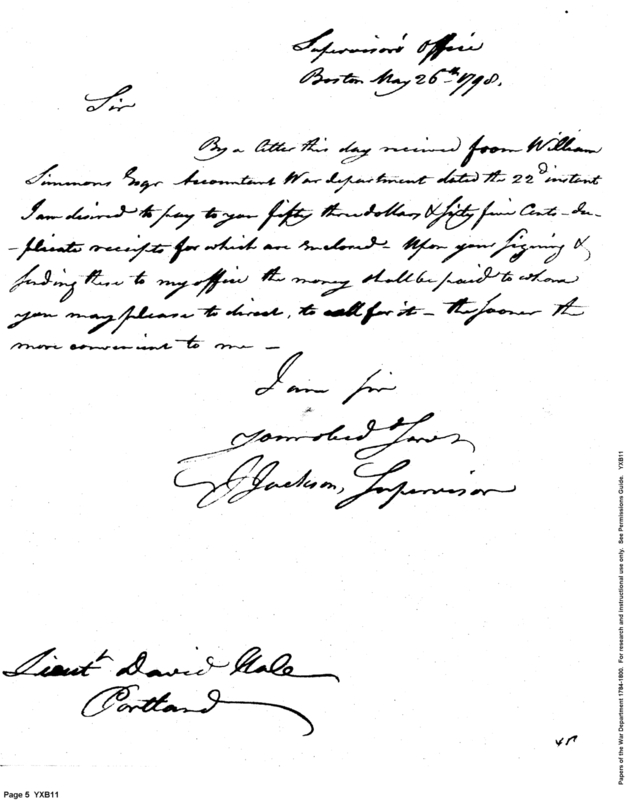 Supervisor's Office
Boston May 26th 1798.
Sir
By a letter this day received from William
Simmons Esqr Accountant War department dated the 22d instant
I am desired to pay to you fifty three dollars & sixty five Cents - du-
-plicate receipts for which are enclosed - Upon your signing &
sending these to my office the money shall be paid to whom
you may please to direct, to call for it - the sooner the
more convenient to me -
I am sir
your obed Servt
J Jackson, Supervisor
Lieut David Hale
Portland
Page 5 YXB11
Papers of the War Department 1784-1800. For research and instructional use only. See Permissions Guide. YXB11